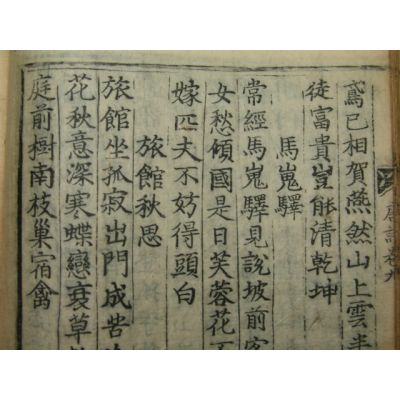 鳶已相賀燕然山上雲半
徒富貴豈能清乾坤
馬嵬驛
常經馬嵬驛見說坡前客
女愁傾國是日芙蓉花不
嫁匹夫不妨得頭白
旅館秋思
旅館坐孤寂出門成苦
花秋意深寒蝶戀衰草
庭前樹南枝巢宿禽
唐詩卷九